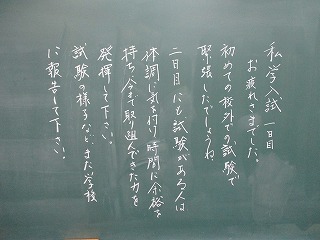 私学入試 一日目
お疲れさまでした。
初めての校外での試験で
緊張したでしょうね
二日目にも試験がある人は
体調に気を付け、時間に余裕を
持ち、今まで取り組んできた力を
発揮して下さい。
試験の様子など、また学校
に報告して下さい。